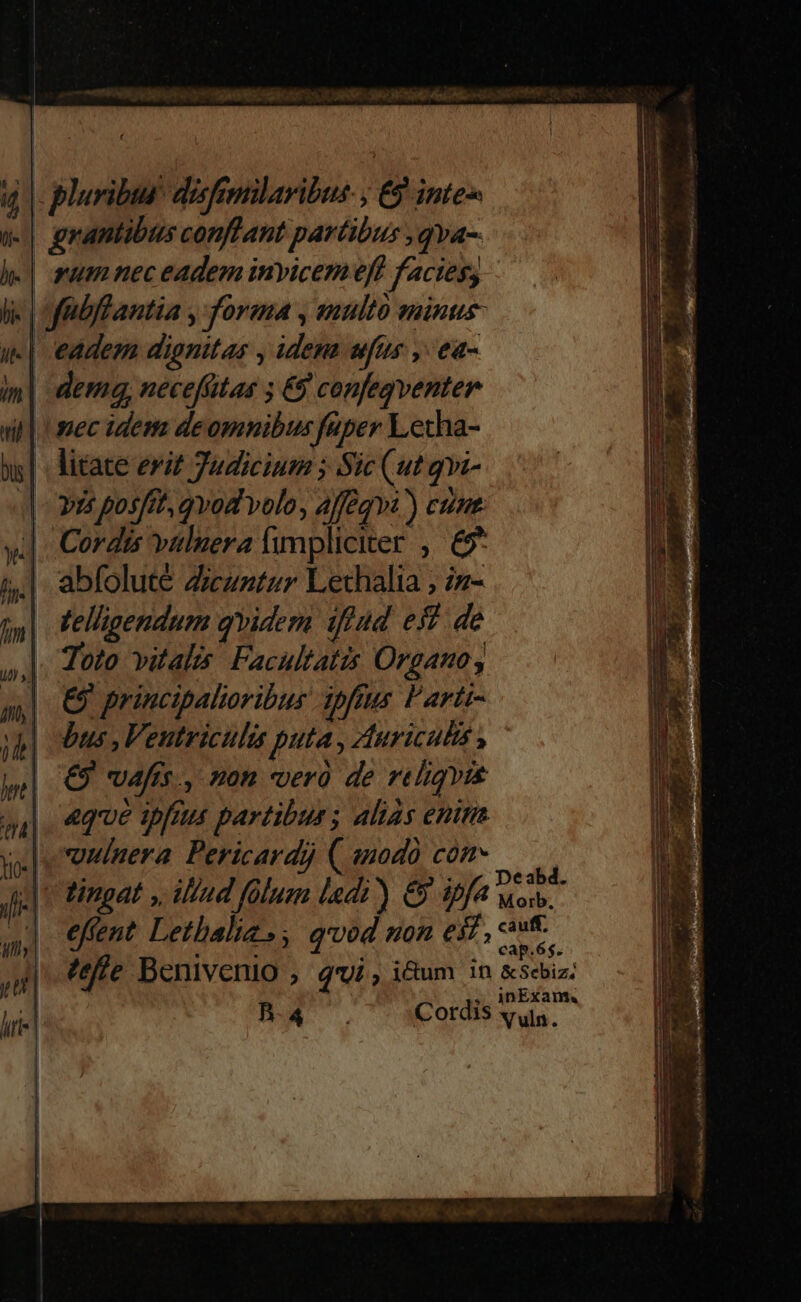 pluribus disſimilaribus, & inte-
grantibus conſtant partibus, qva-
rum nec eadem invicem eſt facies,
ſubſtantia, forma, multò minus
eadem dignitas, idem uſus, ea-
demq, neceſſitas; & conſeqventer
nec idem de omnibus ſuper Letha-
litate erit Judicium; Sic (ut qvi-
vis posſit, qvod volo, aſſeqvi) cùm
Cordis vulnera ſimpliciter, &
abſolutè dicuntur Lethalia, in-
telligendum qvidem iſtud eſt de
Toto vitalis Facultatis Organo,
& principalioribus ipſius Parti-
bus, Ventriculis puta, Auriculis,
& vaſis, non verò de reliqvis
æqvè ipſius partibus; aliàs enim
vulnera Pericardij (modò con-
tingat, illud ſolum lædi) & ipſa
eſſent Lethalia, qvod non eſt,
teſte Benivenio, qvi, ictum in
De abd.
Morb.
cauſſ.
cap. 65.
& Sebiz.
in Exam.
Vuln.
B 4 Cordis